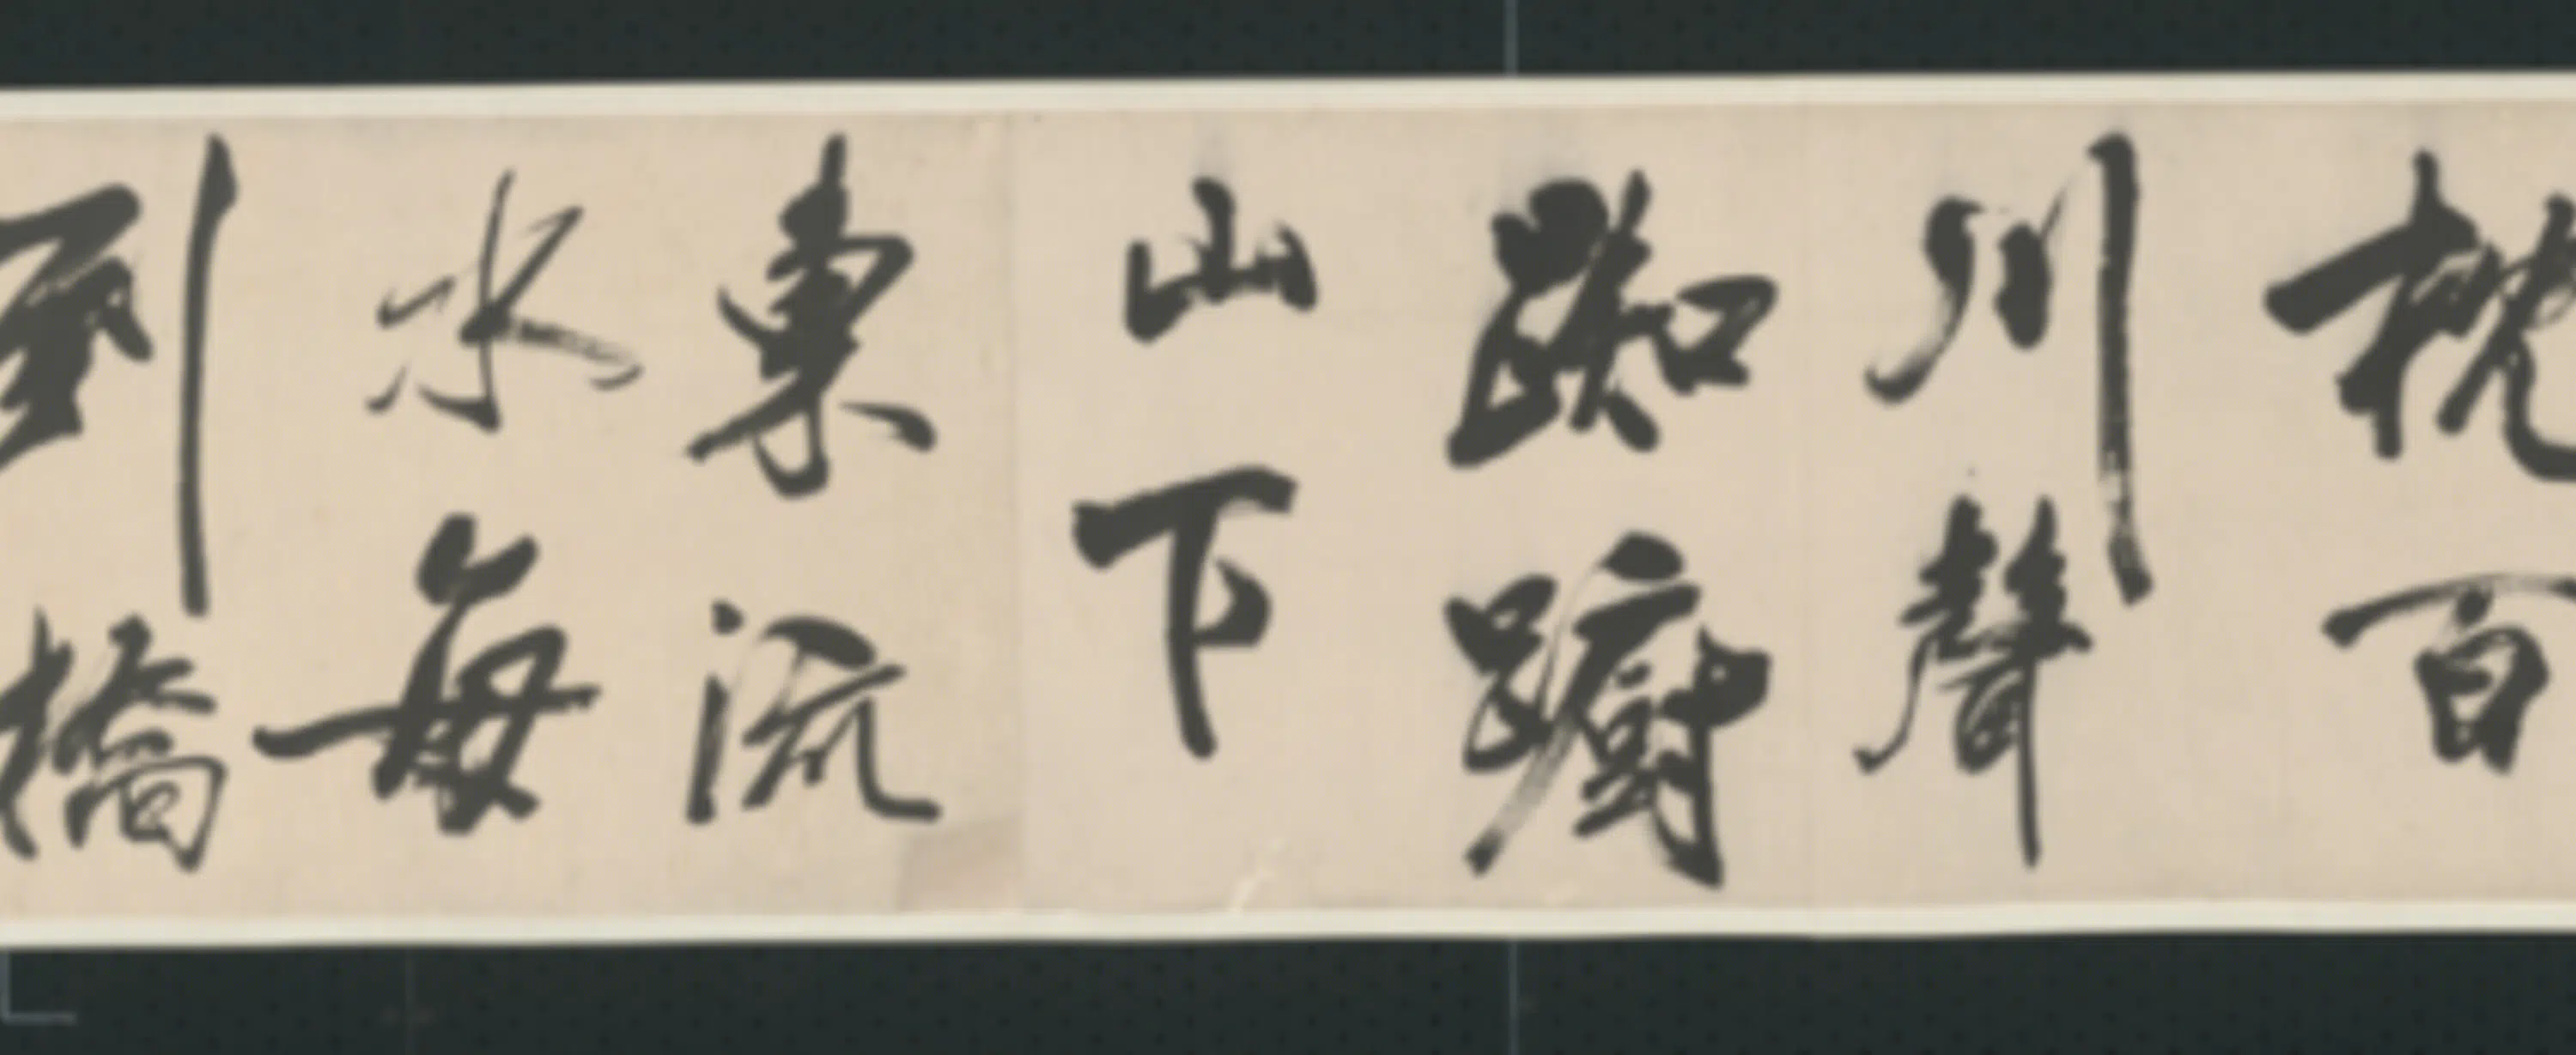 枕百
川聲
踟躕
山下
東流
水每
到橋